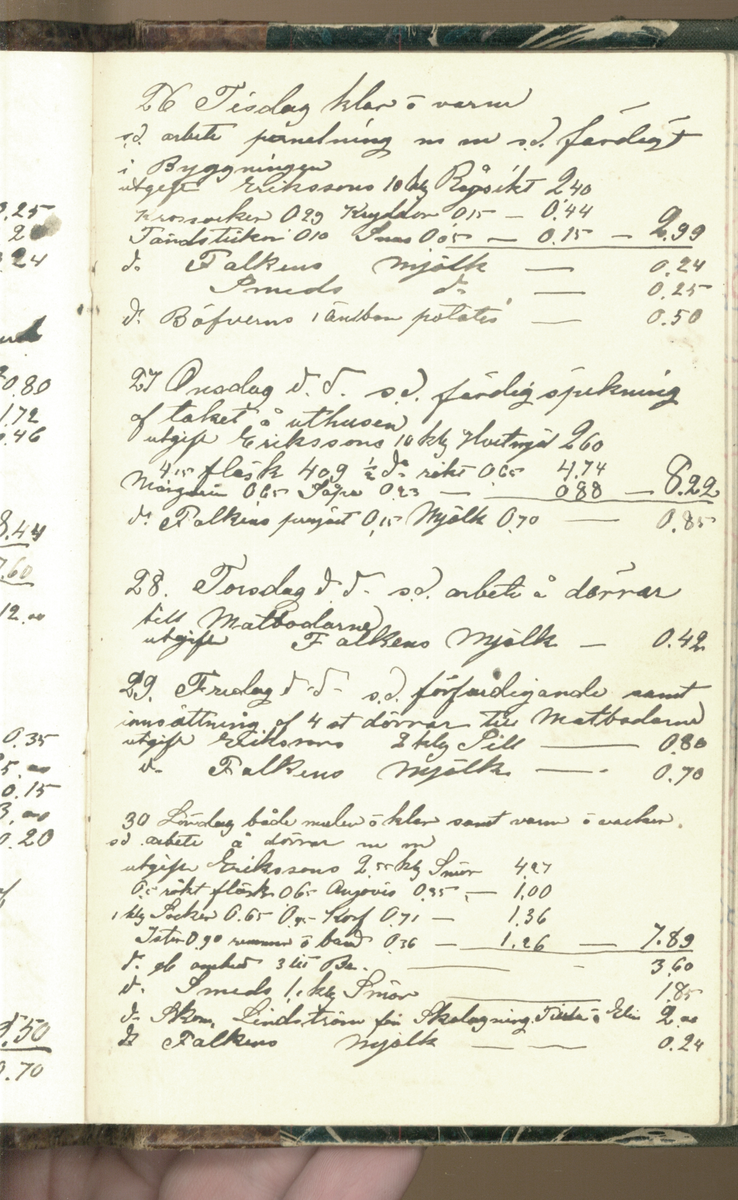 3.25
20
3.24
0.80
1.72
0.46
8.44
7.60
12.00
0.35
5.00
0.15
3.00
0.20
5.50
0.70
26 Tisdag klar ö varm
s.d. arbete m m s.d. färdigt
i Byggningen
utgift Erikssons 10 klg Rågsikt 2.40
Krossocker 0.29 Kryddor 0.15 — 0.44
Tändstickor 0.10 Snus 0.05 — 0.15 — 2.99
do Falkens Mjölk — 0.24
Smeds do — 0.25
do Bäfverns potatis — 0.50
27 Onsdag d. d. s.d. färdig spikning
af taket å uthusen
utgift Erikssons 10 klg Hvetmjöl 2.60
4.15 fläsk 4.09 ½ do rökt 0.65 4.74
Margarin 0.65 Såpa 0.23 — 0.88 — 8.22
do Falkens 0.15 Mjölk 0.70 — 0.85
28. Torsdag d. d. s.d. arbete å dörrar
till Matbodarne
utgift Falkens Mjölk — 0.42
29. Fredag d. d. s.d. förfärdigande samt
innsättning af 4 st dörrar till Matbodarne
utgift Erikssons 2 klg Sill — 0.80
d. Falkens Mjölk — 0.70
30 Lördag både mulen ö klar samt varm ö vacker.
s.d. arbete å dörrar m m
utgift Erikssons 2.55 klg Smör 4.27
0.5 rökt fläsk 0.65 Anjovis 0.35 — 1.00
1 klg Socker 0.65 Korf 0.71 — 1.36
Ister 0.90 ö band 0.36 — 1.26 — 7.89
d. 3 lit — 3.60
d. Smeds klg Smör — 1.85
d. Skom. Lindström för Skolagning ö Elin 2.00
d. Falkens Mjölk — — 0.24